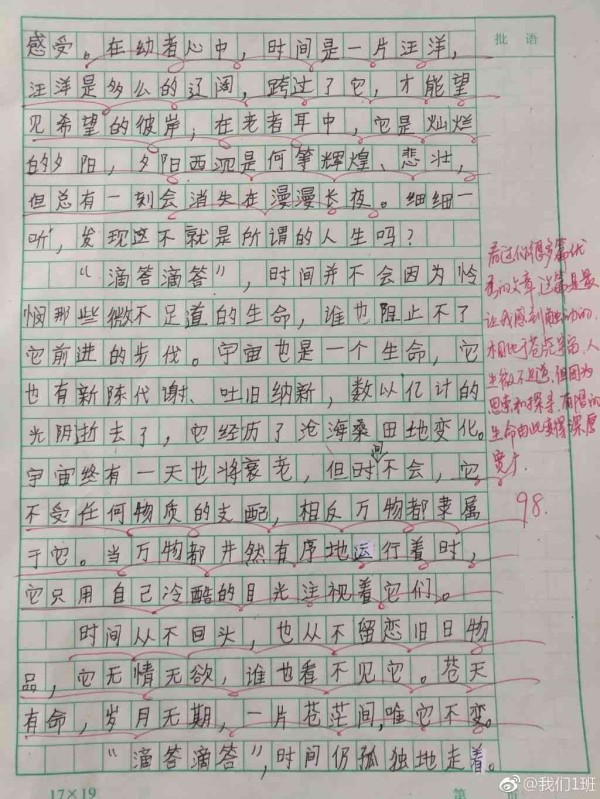 批 语
感受。在幼者心中，时间是一片汪洋，
汪洋是多么的辽阔，跨过了它，才能望
见希望的彼岸，在老者耳中，它是灿烂
的夕阳，夕阳西沉是何等辉煌、悲壮，
但总有一刻会消失在漫漫长夜。细细一
听，发现这不就是所谓的人生吗？
“滴答滴答”，时间并不会因为怜
悯那些微不足道的生命，谁也阻止不了
它前进的步伐。宇宙也是一个生命，它
也有新陈代谢、吐旧纳新，数以亿计的
光阴逝去了，它经历了沧海桑田地变化。
宇宙终有一天也将衰老，但时间不会，它
不受任何物质的支配，相反万物都隶属
于它。当万物都井然有序地运行着时，
它只用自己冷酷的目光注视着它们。
时间从不回头，也从不留恋旧日物
品，它无情无欲，谁也看不见它。苍天
有命，岁月无期，一片苍茫间，唯它不变。
“滴答滴答”，时间仍孤独地走着。
看过你们很多篇优
秀的文章，这篇是最
让我感到触动的，
相比于苍茫宇宙，人
生微不足道，但因为
思索和探寻，有限的
生命由此变得深厚
宽广。
98.
17×19
第 页
@我们1班